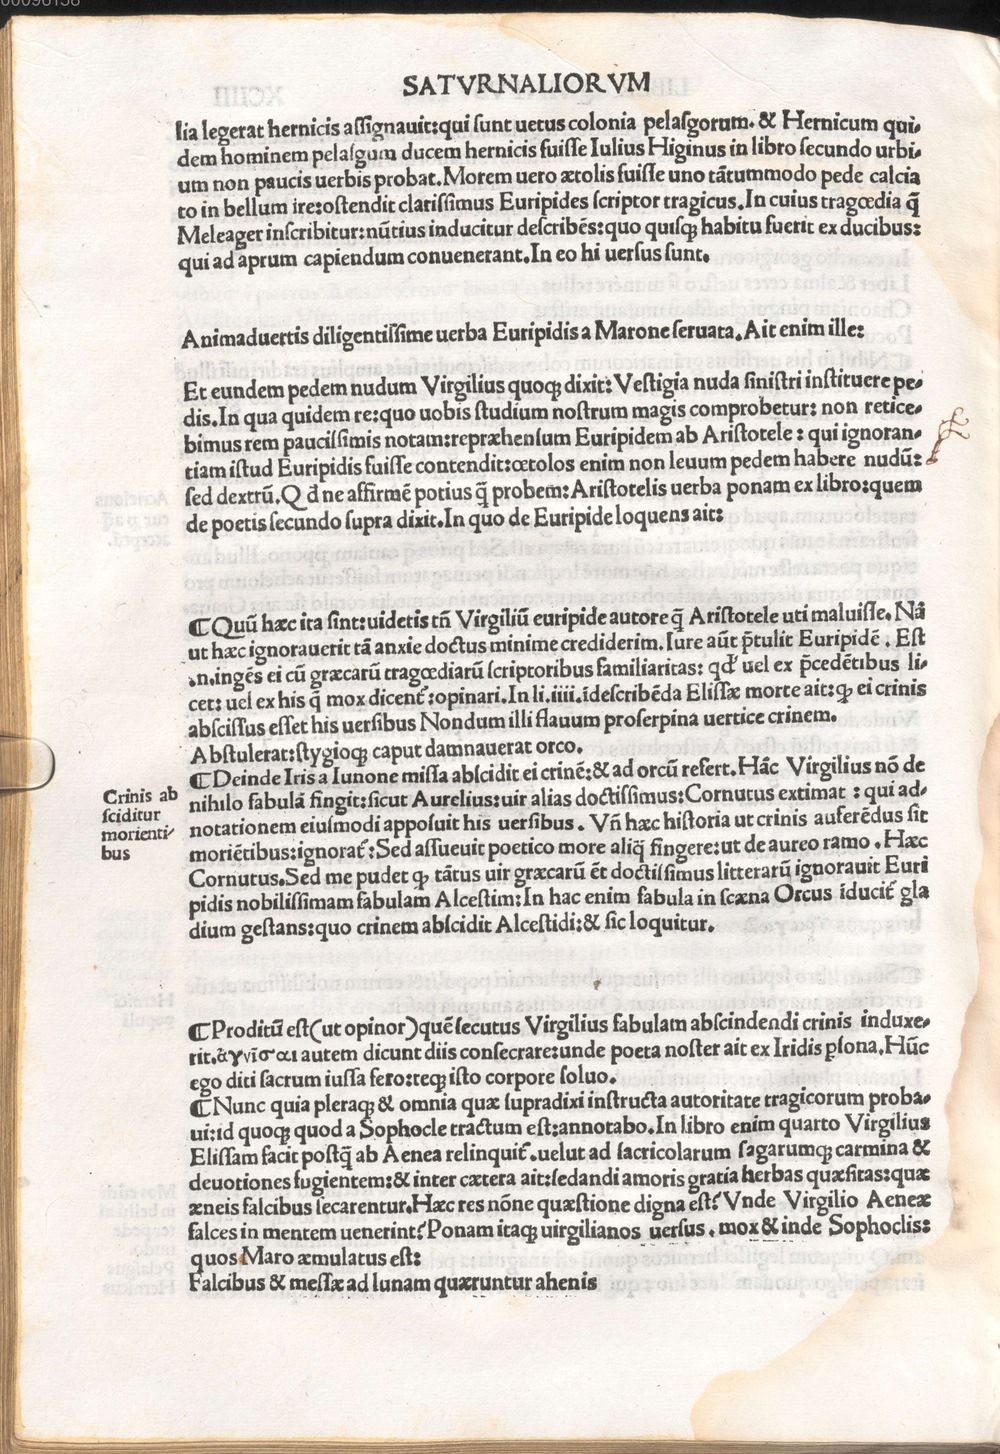 00096138
SATVRNALIORVM
lia legerat hernicis aſſignauit:qui ſunt uetus colonia pelaſgorum. & Hernicum qui-
dem hominem pelaſgum ducem hernicis fuiſſe Iulius Higinus in libro ſecundo urbi-
um non paucis uerbis probat.Morem uero ætolis fuiſſe uno tātummodo pede calcia
to in bellum ire:oſtendit clariſſimus Euripides ſcriptor tragicus.In cuius tragœdia q̄
Meleager inſcribitur:nūtius inducitur deſcribēs:quo quiſqꝫ habitu fuerit ex ducibus:
qui ad aprum capiendum conuenerant.In eo hi uerſus ſunt.
Animaduertis diligentiſſime uerba Euripidis a Marone ſeruata.Ait enim ille:
Et eundem pedem nudum Virgilius quoqꝫ dixit: Veſtigia nuda ſiniſtri inſtituere pe-
dis.In qua quidem re:quo uobis ſtudium noſtrum magis comprobetur: non retice-
bimus rem pauciſſimis notam:repræhenſum Euripidem ab Ariſtotele : qui ignoran-
tiam iſtud Euripidis fuiſſe contendit:œtolos enim non leuum pedem habere nudū:
ſed dextrū.Q đ ne affirmē potius q̄ probem: Ariſtotelis uerba ponam ex libro:quem
de poetis ſecundo ſupra dixit.In quo de Euripide loquens ait:
¶Quū hæc ita ſint:uidetis tñ Virgiliū euripide autore q̄ Ariſtotele uti maluiſſe. Nā
ut hæc ignorauerit tā anxie doctus minime crediderim.Iure aūt p̄tulit Euripidē . Eſt
.n.ingēs ei cū græcarū tragœdiarū ſcriptoribus familiaritas: qđ uel ex p̄cedētibus li-
cet: uel ex his q̄ mox dicent᷑ :opinari.In li.iiii.īdeſcribēda Eliſſæ morte ait:ꝙ ei crinis
abſciſſus eſſet his uerſibus Nondum illi flauum proſerpina uertice crinem.
Abſtulerat:ſtygioqꝫ caput damnauerat orco.
¶Deinde Iris a Iunone miſſa abſcidit ei crinē:& ad orcū refert.Hāc Virgilius nō de
nihilo fabulā fingit:ſicut Aurelius:uir alias doctiſſimus:Cornutus extimat : qui ad-
notationem eiuſmodi appoſuit his uerſibus . Vñ hæc hiſtoria ut crinis auferēdus ſit
moriētibus:ignorat᷑: Sed aſſueuit poetico more aliq̄ fingere:ut de aureo ramo . Hæc
Cornutus.Sed me pudet ꝙ tātus uir græcarū ēt doctiſſimus litterarū ignorauit Euri
pidis nobiliſſimam fabulam Alceſtim:In hac enim fabula in ſcæna Orcus īducit᷑ gla
dium geſtans:quo crinem abſcidit Alceſtidi:& ſic loquitur.
Crinis ab
ſciditur
morienti-
bus
¶Proditū eſt(ut opinor)quē ſecutus Virgilius fabulam abſcindendi crinis induxe-
rit.ἁγνῖσαι autem dicunt diis conſecrare:unde poeta noſter ait ex Iridis ꝑſona.Hūc
ego diti ſacrum iuſſa fero:teqꝫ iſto corpore ſoluo.
¶Nunc quia pleraqꝫ & omnia quæ ſupradixi inſtructa autoritate tragicorum proba-
ui:id quoqꝫ quod a Sophocle tractum eſt:annotabo.In libro enim quarto Virgilius
Eliſſam facit poſtq̄ ab Aenea relinquit᷑.uelut ad ſacricolarum ſagarumqꝫ carmina &
deuotiones fugientem:& inter cætera ait:ſedandi amoris gratia herbas quæſitas:quæ
æneis falcibus ſecarentur.Hæc res nōne quæſtione digna eſt? Vnde Virgilio Aeneæ
falces in mentem uenerint? Ponam itaqꝫ uirgilianos uerſus . mox & inde Sophoclis:
quos Maro æmulatus eſt:
Falcibus & meſſæ ad lunam quæruntur ahenis